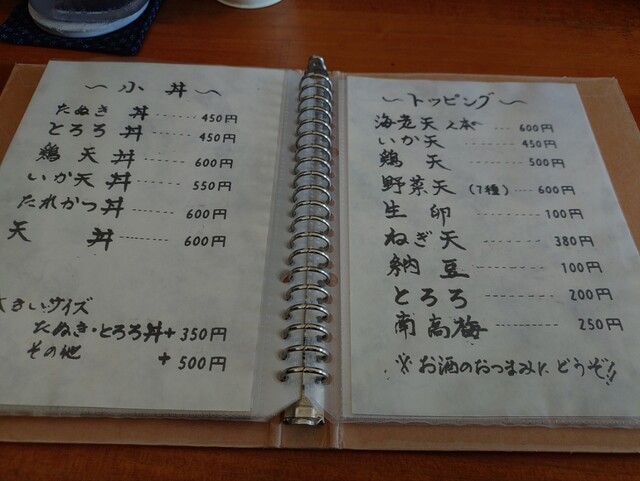 〜小丼〜
たぬき丼------450円
とろろ丼------450円
鶏天丼------600円
いか天丼------550円
たれかつ丼------600円
天丼------600円
大きいサイズ
たぬき・とろろ丼+350円
その他 +500円
〜トッピング〜
海老天2本------600円
いか天------450円
鶏天------500円
野菜天(7種)------600円
生卵------100円
ねぎ天------380円
納豆------100円
とろろ------200円
南高梅------250円
※お酒のおつまみにどうぞ!!